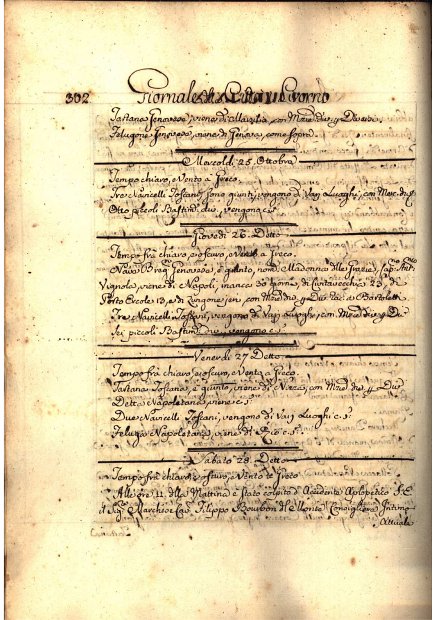 302 Giornale di Livorno
Tartana Genovese, viene di Marsilia, con Merc. div. p. Diversi
Feluga Genovese, viene di Genova, come sopra
Mercoldi 25. Ottobre
Tempo chiaro, e Vento a Greco
Tre Navicelli Toscani sono giunti, vengono di Varij Luoghi, con Merc. div.
Otto piccoli Bastim. div. vengono c. s.
Giovedi 26. Detto
Tempo frà chiaro, e oscuro, e Vento a Greco
Nave Genovese, è giunto, nom. Madonna delle Grazie, Cap.
Vignolo, viene di Napoli, manca 30 giorni, di Civitavecchia 23, di
Porto Ercole 13, e di Longone jeri, con Merc. div. p. de Bartoletti
Tre Navicelli Toscani, vengono di Varij Luoghi, con Merc. div. p. D.
Sei piccoli Bastim. div. vengono c. s.
Venerdi 27 Detto
Tempo frà chiaro, e oscuro, e Vento a Greco
Tartana Toscana, è giunta, viene di con Merc. div. p. Div.
Detta Napoletana, viene c. s.
Due Navicelli Toscani, vengono di Varij Luoghi c. s.
Feluga Napoletana, viene di c. s.
Sabato 28. Detto
Tempo frà chiaro, e oscuro, e Vento a Greco
Alle ore 11. della Mattina è stato colpito d'Accidente Apopletico S. E.
il Sig. Marchese Cav. Filippo Bourbon del Monte Consigliere Intimo
Attuale